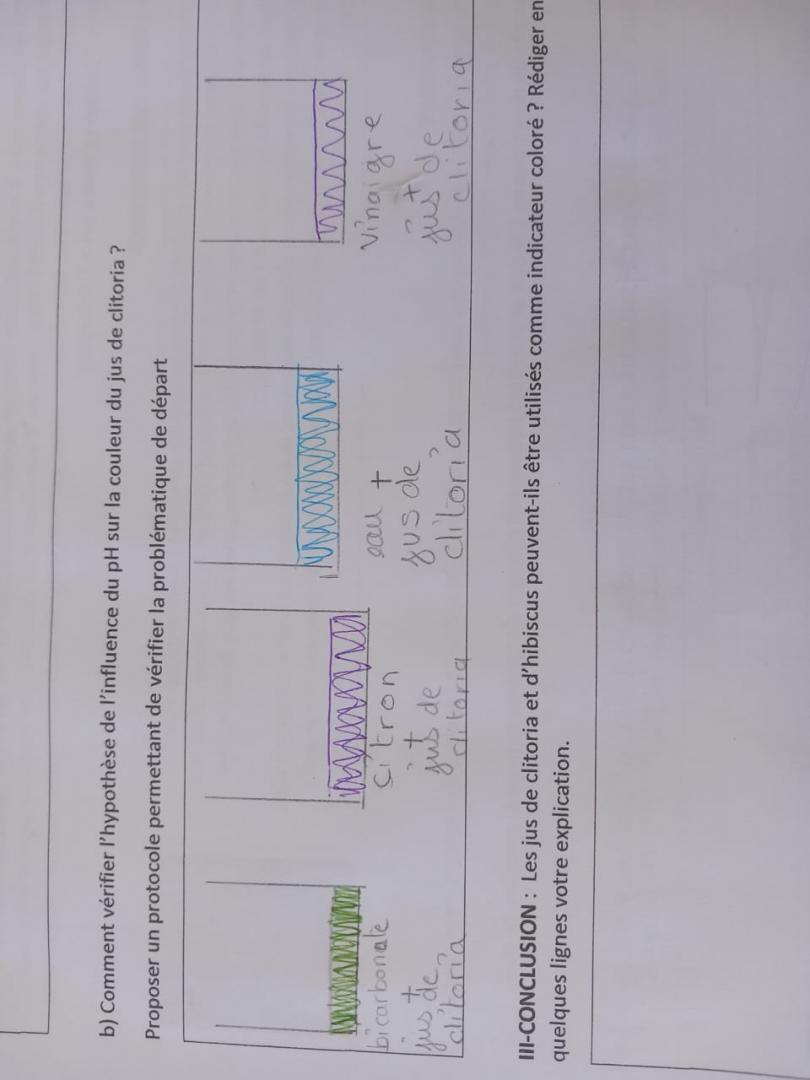 b) Comment vérifier l'hypothèse de l'influence du pH sur la couleur du jus de clitoria ?
Proposer un protocole permettant de vérifier la problématique de départ
bicarbonate
+
jus de
clitoria
citron
+
jus de
clitoria
eau +
jus de
clitoria
vinaigre
+
jus de
clitoria
III-CONCLUSION : Les jus de clitoria et d'hibiscus peuvent-ils être utilisés comme indicateur coloré ? Rédiger en
quelques lignes votre explication.